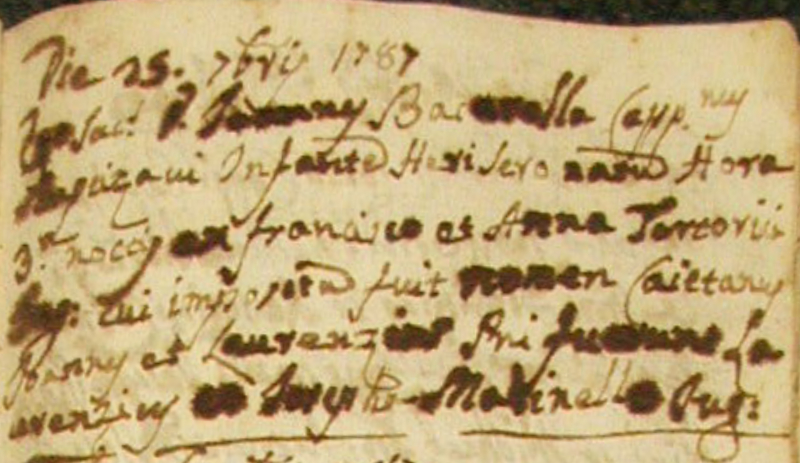 Die 25. 7bris 1787
Ego Sac: D. Joannes Bacarella Capp.nus
Baptizavi Infante Heri Sero natu Hora
3.a noctis ex francisco et Anna Tortorici
Jug: Cui impositu fuit nomen Caietanus
Joannes et Laurenzius Pni fuerunt La
urenzius et Joseph Matinella Jug: